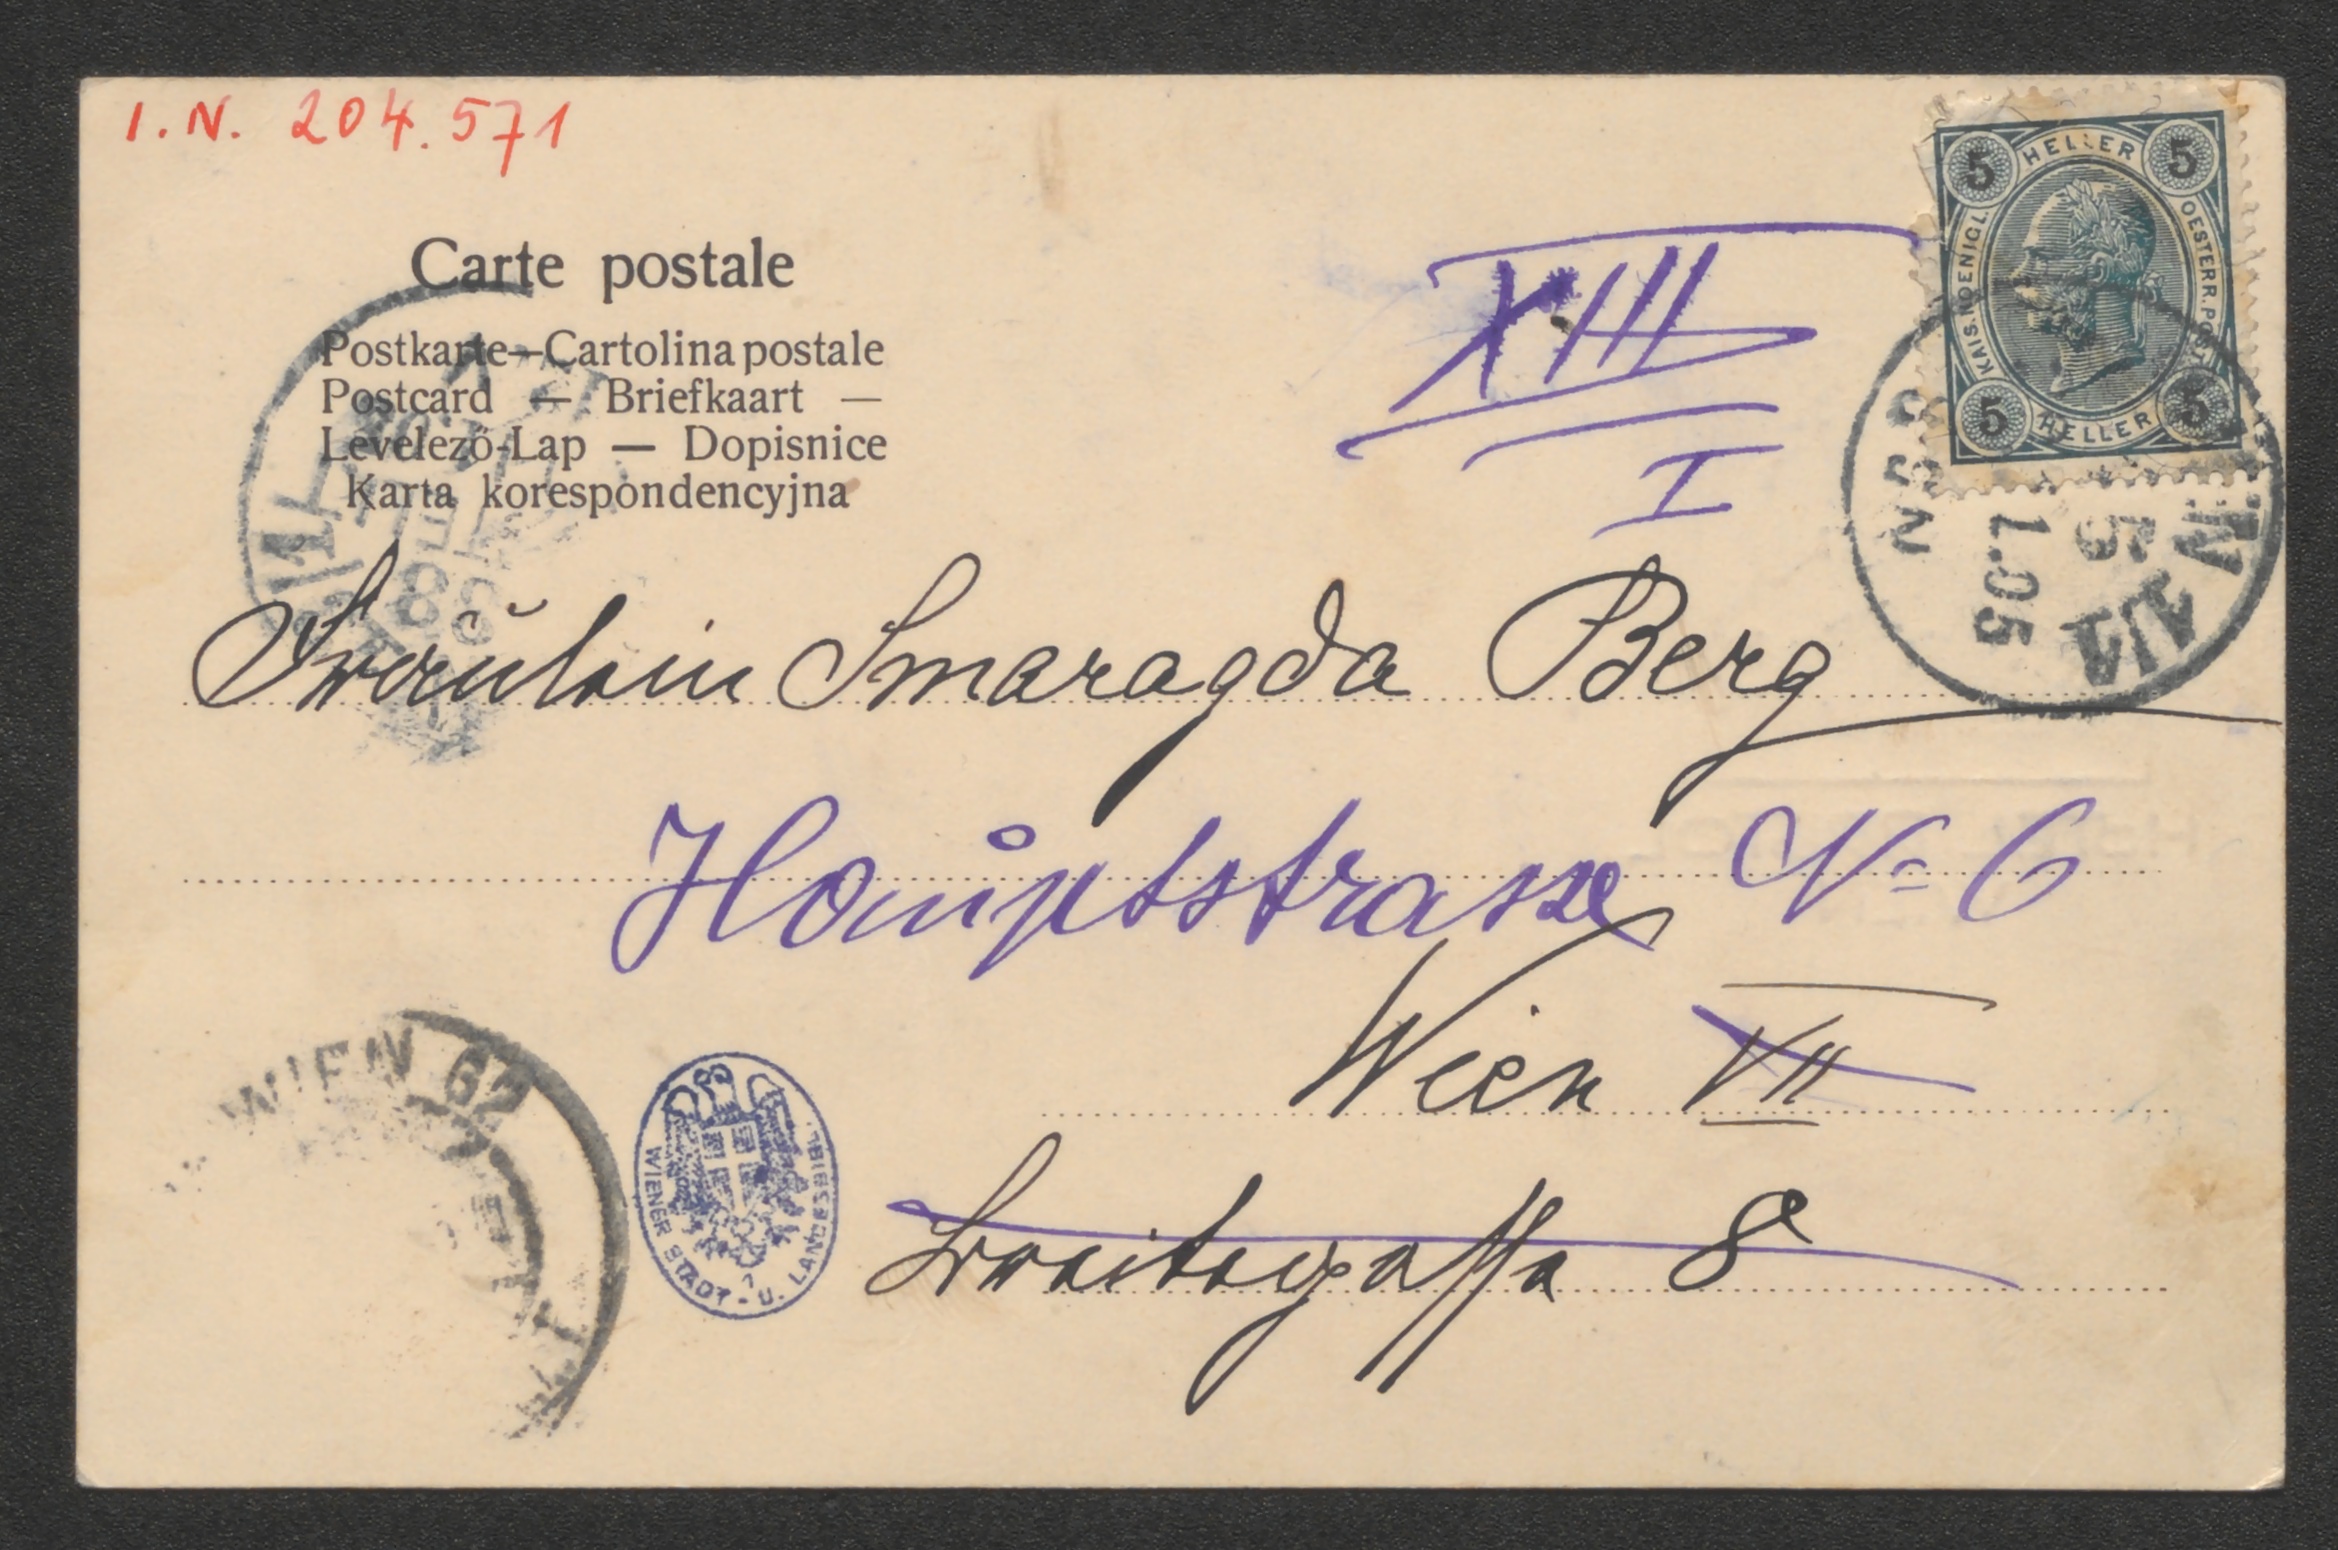 I. N. 204.571
Carte postale
Postkarte—Cartolina postale
Postcard — Briefkaart —
Levelező-Lap — Dopisnice
Karta korespondencyjna
XIII
I
5 HELLER 5
KAIS. KOENIGL. OESTERR. POST
5 HELLER 5
5
1.05
Fräulein Smaragda Berg
Hauptstrasse No 6
Wien VII
Breitegasse 8
WIEN 62
WIENER STADT- U. LANDESBIBL.